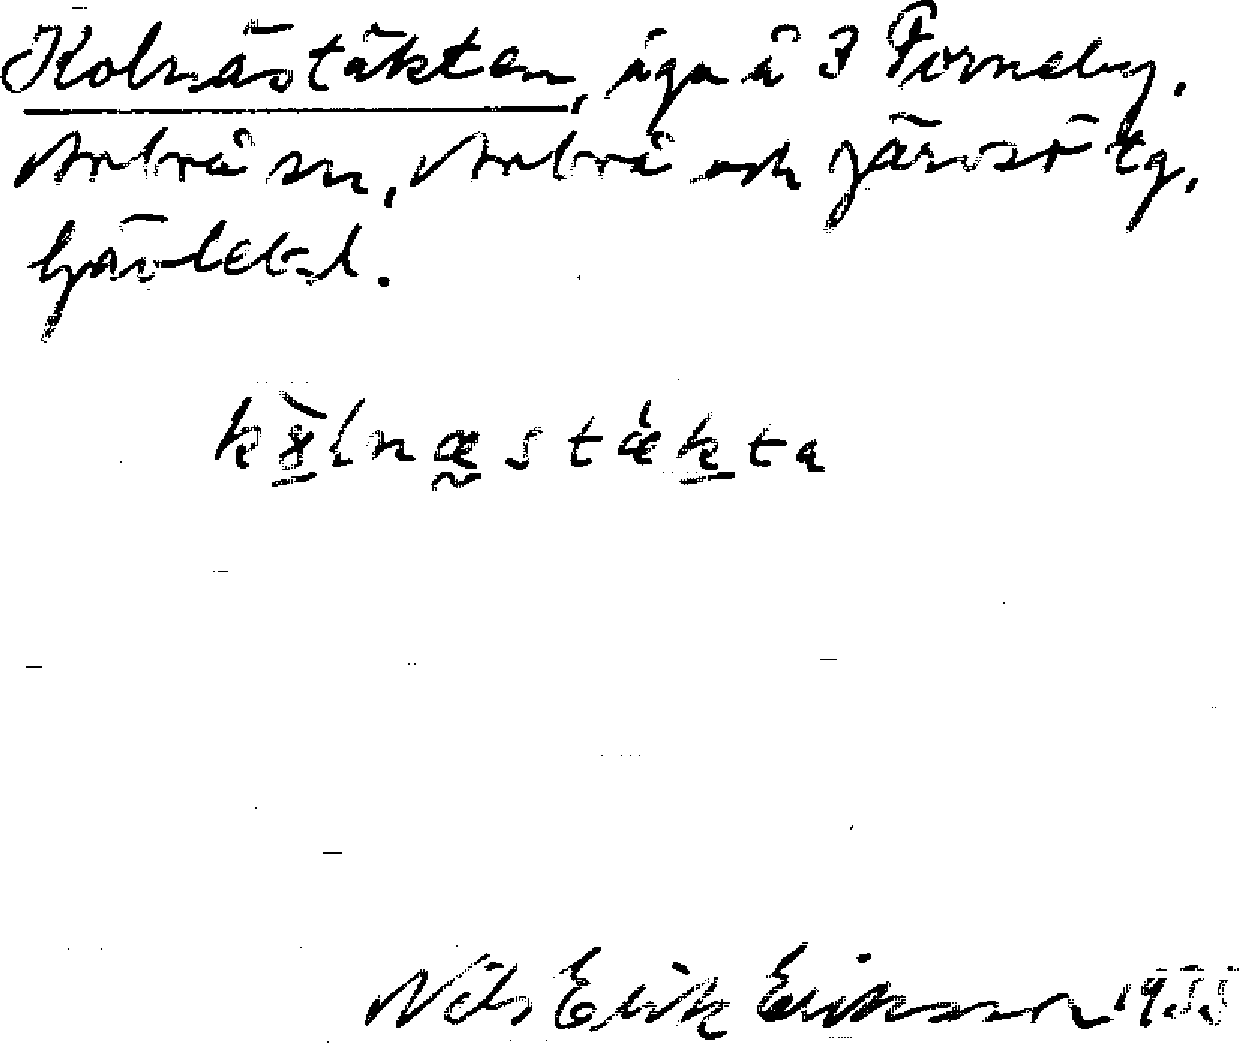 Kolnästäkten, äga å 3 Forneby.
Arbrå sn, Arbrå och Järvsö tg,
Gävleb. l.
kölnæstækta
Nils Erik Eriksson 1955